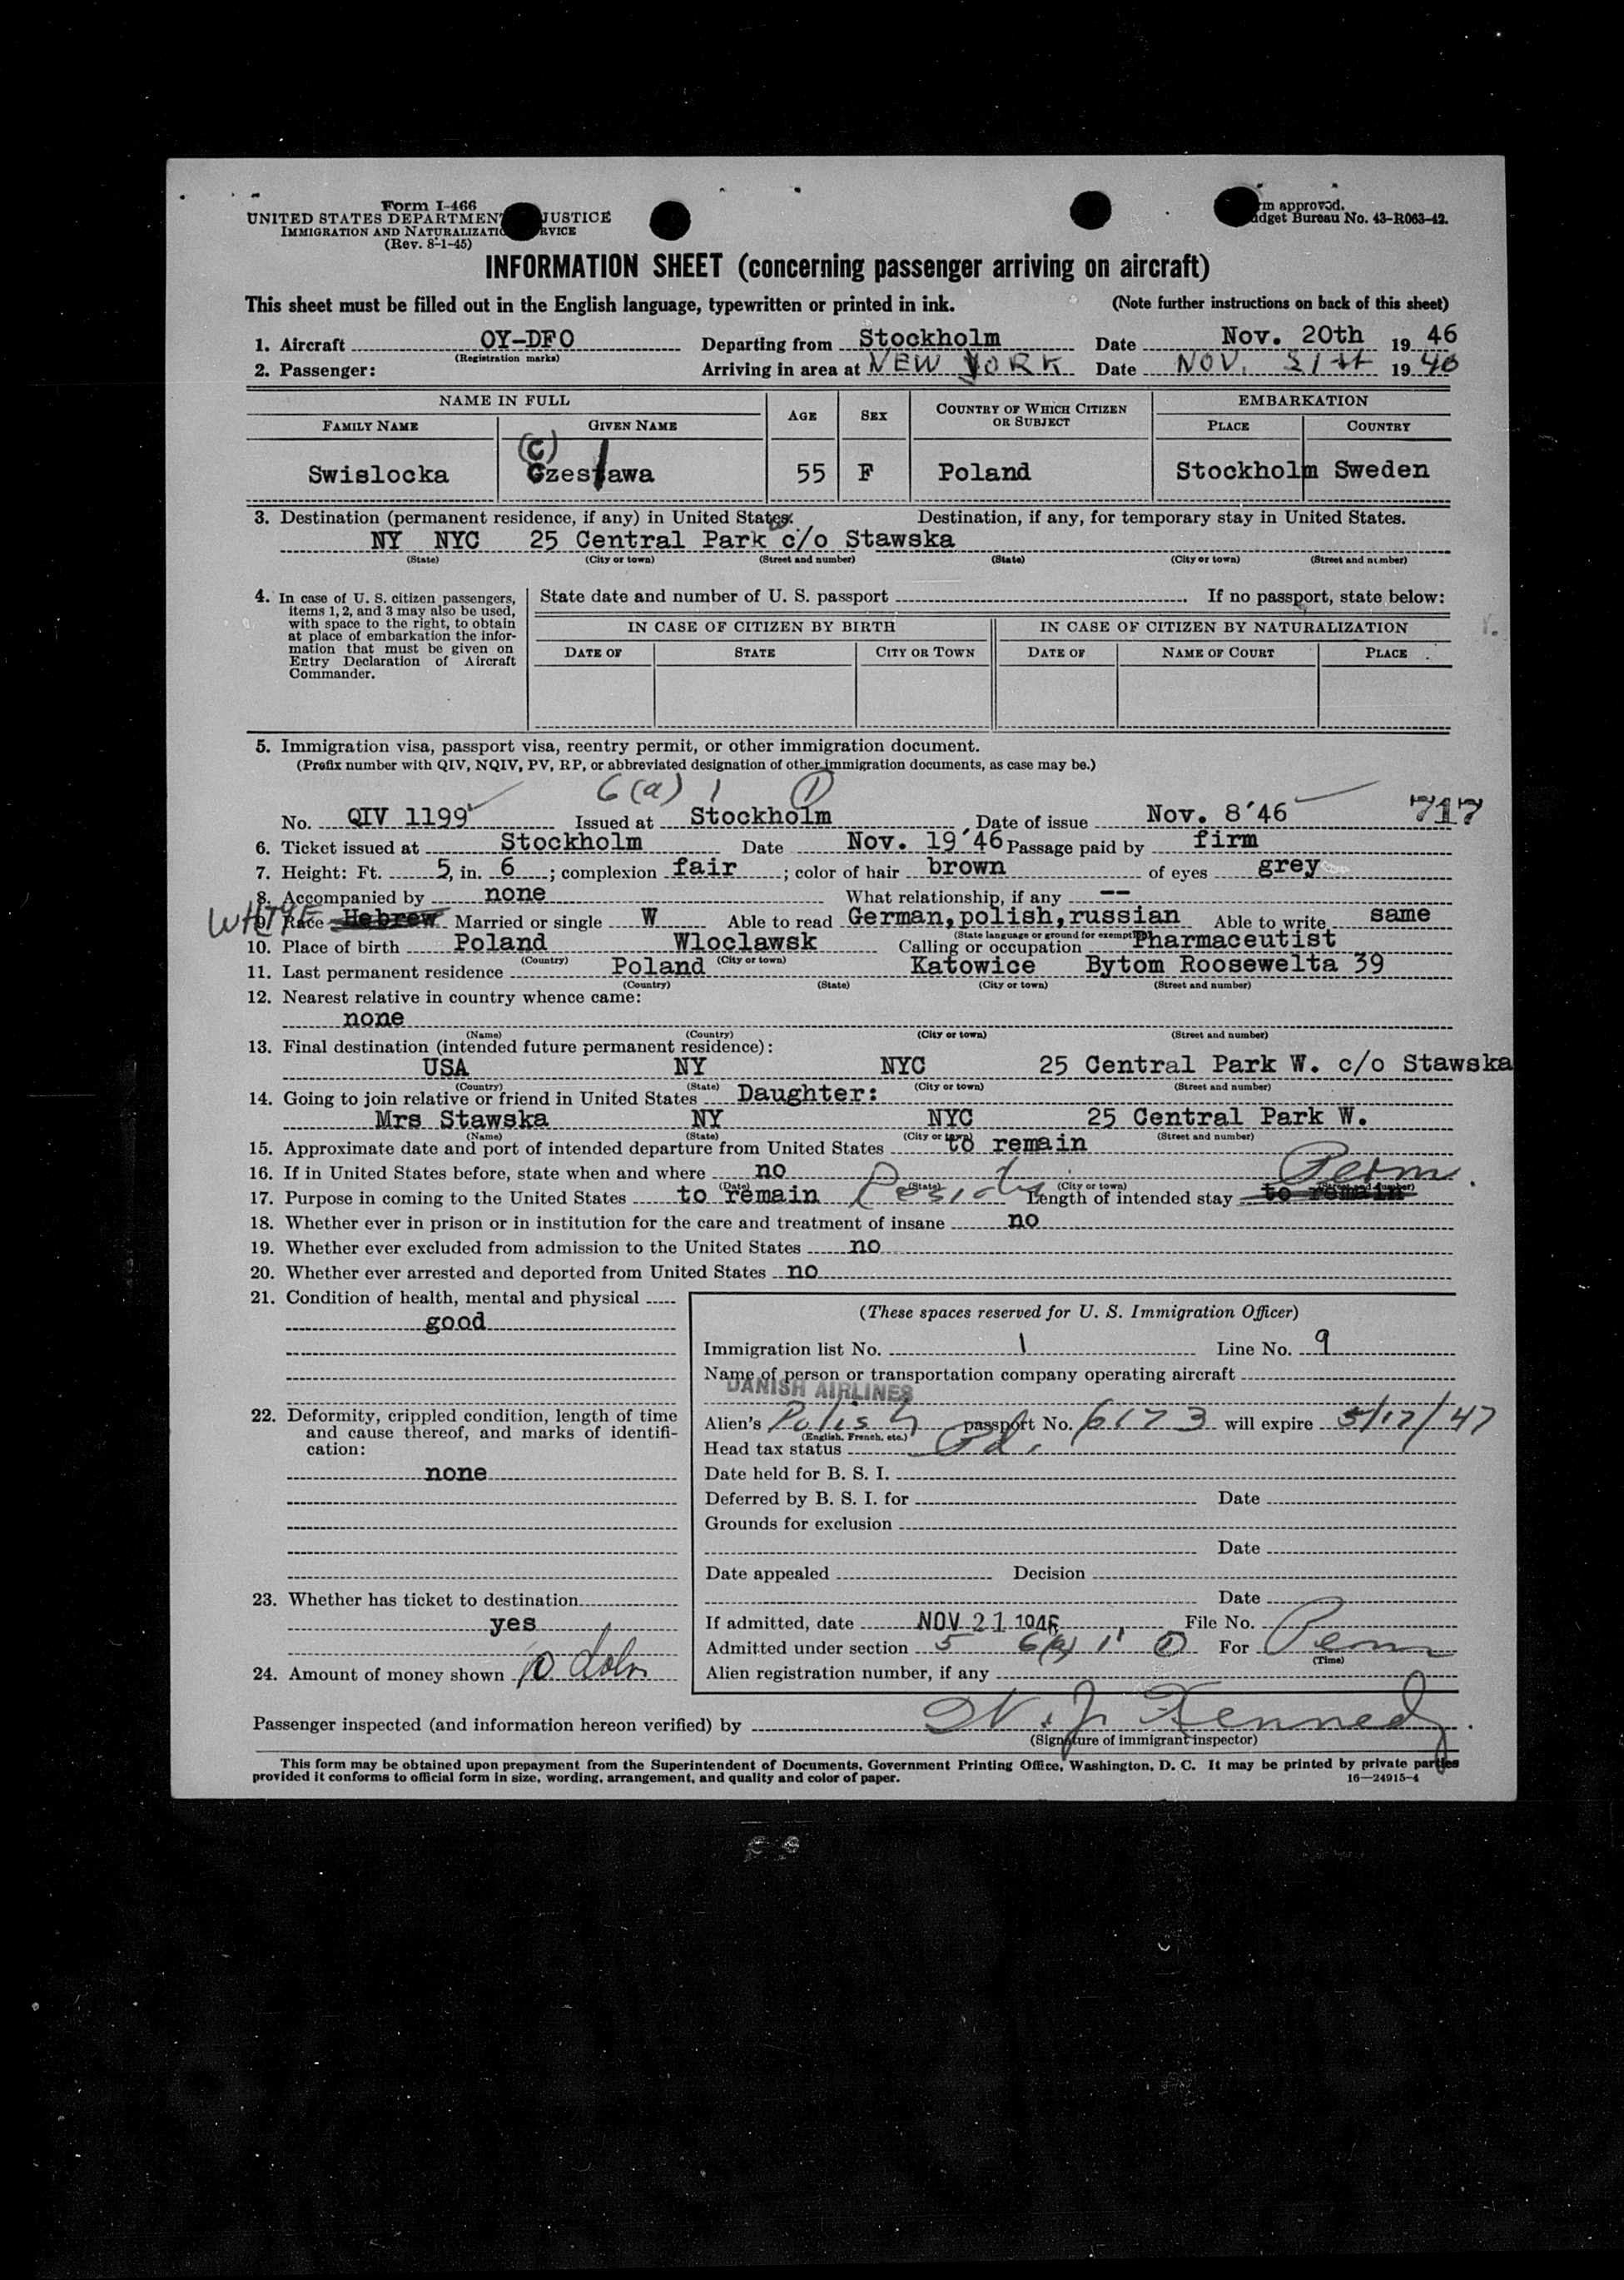 Form I-466
UNITED STATES DEPARTMENT JUSTICE
IMMIGRATION AND NATURALIZATIO RVICE
(Rev. 8-1-45)
rm approved.
dget Bureau No. 43-R063-42.
INFORMATION SHEET (concerning passenger arriving on aircraft)
This sheet must be filled out in the English language, typewritten or printed in ink. (Note further instructions on back of this sheet)
1. Aircraft OY-DFO Departing from Stockholm Date Nov. 20th 19 46
(Registration marks)
2. Passenger: Arriving in area at NEW YORK Date NOV. 21st 19 46
NAME IN FULL AGE SEX COUNTRY OF WHICH CITIZEN OR SUBJECT EMBARKATION
FAMILY NAME GIVEN NAME PLACE COUNTRY
(C)
Swislocka Czesława 55 F Poland Stockholm Sweden
3. Destination (permanent residence, if any) in United States. Destination, if any, for temporary stay in United States.
NY NYC 25 Central Park w. c/o Stawska
(State) (City or town) (Street and number) (State) (City or town) (Street and number)
4. In case of U. S. citizen passengers, items 1, 2, and 3 may also be used, with space to the right, to obtain at place of embarkation the information that must be given on Entry Declaration of Aircraft Commander.
State date and number of U. S. passport If no passport, state below:
IN CASE OF CITIZEN BY BIRTH IN CASE OF CITIZEN BY NATURALIZATION
DATE OF STATE CITY OR TOWN DATE OF NAME OF COURT PLACE
5. Immigration visa, passport visa, reentry permit, or other immigration document.
(Prefix number with QIV, NQIV, PV, RP, or abbreviated designation of other immigration documents, as case may be.)
6(a) 1 (1)
No. QIV 1199 Issued at Stockholm Date of issue Nov. 8'46 717
6. Ticket issued at Stockholm Date Nov. 19'46 Passage paid by firm
7. Height: Ft. 5, in. 6 ; complexion fair ; color of hair brown of eyes grey
8. Accompanied by none What relationship, if any --
WHITE
9. Race Hebrew Married or single W Able to read German,polish,russian Able to write same
(State language or ground for exemption)
10. Place of birth Poland Wloclawsk Calling or occupation Pharmaceutist
(Country) (City or town)
11. Last permanent residence Poland Katowice Bytom Roosewelta 39
(Country) (State) (City or town) (Street and number)
12. Nearest relative in country whence came:
none
(Name) (Country) (City or town) (Street and number)
13. Final destination (intended future permanent residence):
USA NY NYC 25 Central Park W. c/o Stawska
(Country) (State) (City or town) (Street and number)
14. Going to join relative or friend in United States Daughter:
Mrs Stawska NY NYC 25 Central Park W.
(Name) (State) (City or town) (Street and number)
15. Approximate date and port of intended departure from United States to remain
16. If in United States before, state when and where no
(Date) (State) (City or town) (Street and number)
Perm.
17. Purpose in coming to the United States to remain Length of intended stay to remain
18. Whether ever in prison or in institution for the care and treatment of insane no
19. Whether ever excluded from admission to the United States no
20. Whether ever arrested and deported from United States no
21. Condition of health, mental and physical
good
22. Deformity, crippled condition, length of time and cause thereof, and marks of identification:
none
23. Whether has ticket to destination
yes
24. Amount of money shown 10
(These spaces reserved for U. S. Immigration Officer)
Immigration list No. 1 Line No. 9
Name of person or transportation company operating aircraft
DANISH AIRLINES
Alien's Polish passport No. 6173 will expire 5/17/47
(English, French, etc.)
Head tax status Pd.
Date held for B. S. I.
Deferred by B. S. I. for Date
Grounds for exclusion
Date
Date appealed Decision
Date
If admitted, date NOV 21 1946 File No.
Admitted under section 5 6(a) 1 (1) For Perm
(Time)
Alien registration number, if any
Passenger inspected (and information hereon verified) by N. J. Kennedy
(Signature of immigrant inspector)
This form may be obtained upon prepayment from the Superintendent of Documents, Government Printing Office, Washington, D. C. It may be printed by private parties
provided it conforms to official form in size, wording, arrangement, and quality and color of paper. 16—24915-4